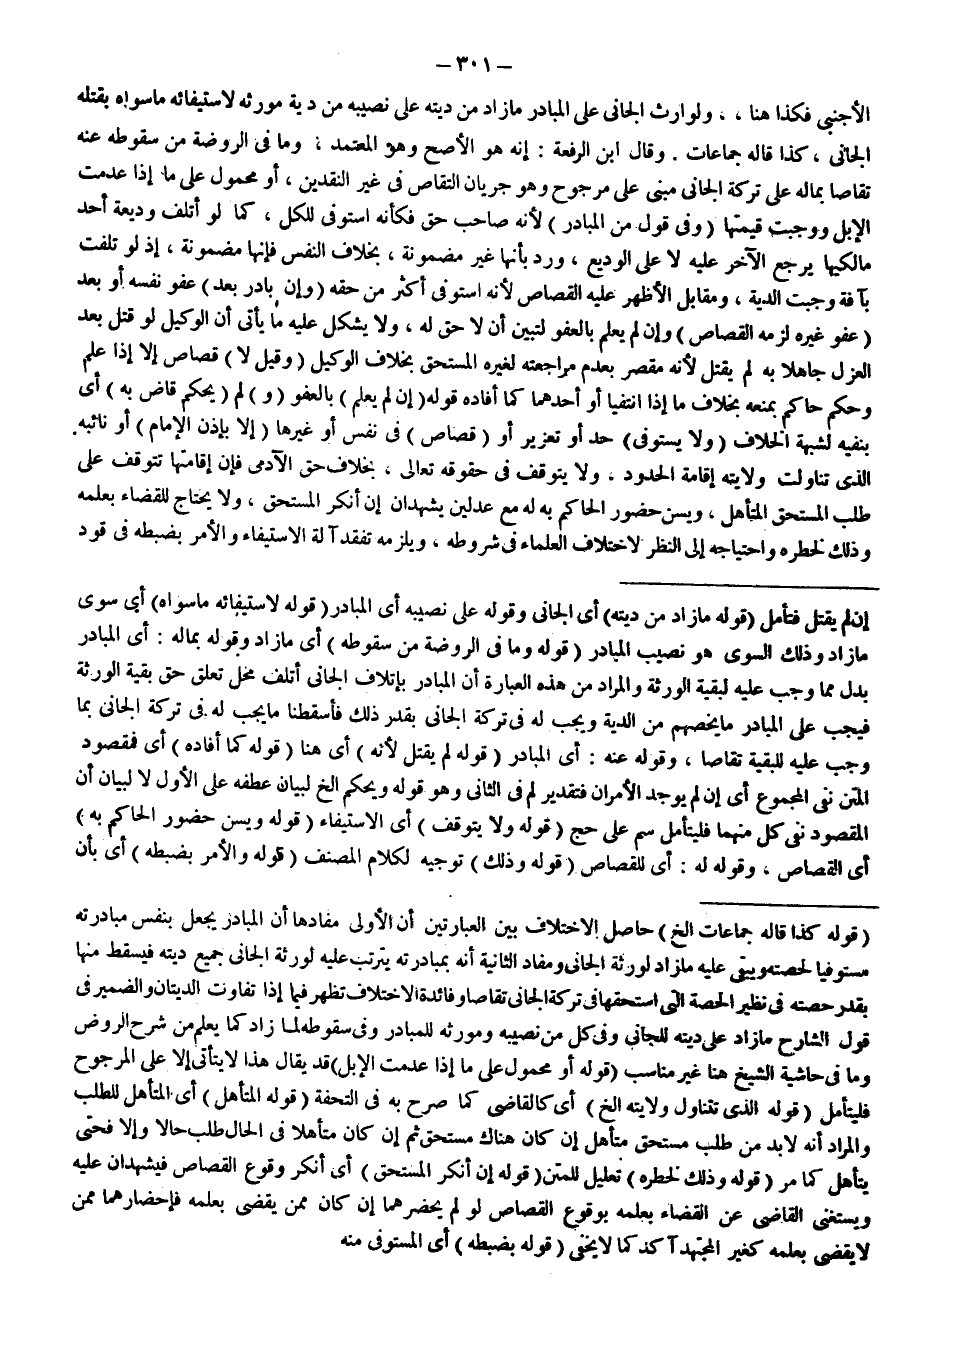 — ٣٠١ —
الأجنبي فكذا هنا ، ، ولوارث الجانى على المبادر مازاد من ديته على نصيبه من دية مورثه لاستيفائه ماسواه بقتله
الجانى ، كذا قاله جماعات . وقال ابن الرفعة : إنه هو الأصح وهو المعتمد ، وما فى الروضة من سقوطه عنه
تقاصا بماله على تركة الجانى مبنى على مرجوح وهو جريان التقاص فى غير النقدين ، أو محمول على ما إذا عدمت
الإبل ووجبت قيمتها ( وفى قول من المبادر ) لأنه صاحب حق فكأنه استوفى للكل ، كما لو أتلف وديعة أحد
مالكيها يرجع الآخر عليه لا على الوديع ، ورد بأنها غير مضمونة ، بخلاف النفس فإنها مضمونة ، إذ لو تلفت
بآفة وجبت الدية ، ومقابل الأظهر عليه القصاص لأنه استوفى أكثر من حقه ( وإن بادر بعد ) عفو نفسه أو بعد
( عفو غيره لزمه القصاص ) وإن لم يعلم بالعفو لتبين أن لا حق له ، ولا يشكل عليه ما يأتى أن الوكيل لو قتل بعد
العزل جاهلا به لم يقتل لأنه مقصر بعدم مراجعته لغيره المستحق بخلاف الوكيل ( وقيل لا ) قصاص إلا إذا علم
وحكم حاكم بمنعه بخلاف ما إذا انتفيا أو أحدهما كما أفاده قوله ( إن لم يعلم ) بالعفو ( و ) لم ( يحكم قاض به ) أى
بنفيه لشبهة الخلاف ( ولا يستوفى ) حد أو تعزير أو ( قصاص ) فى نفس أو غيرها ( إلا بإذن الإمام ) أو نائبه
الذى تناولت ولايته إقامة الحدود ، ولا يتوقف فى حقوقه تعالى ، بخلاف حق الآدمى فإن إقامتها تتوقف على
طلب المستحق المتأهل ، ويسن حضور الحاكم به له مع عدلين يشهدان إن أنكر المستحق ، ولا يحتاج للقضاء بعلمه
وذلك لخطره واحتياجه إلى النظر لاختلاف العلماء فى شروطه ، ويلزمه تفقد آلة الاستيفاء والأمر بضبطه فى قود
إن لم يقتل فتأمل ( قوله مازاد من ديته ) أى الجانى وقوله على نصيبه أى المبادر ( قوله لاستيفائه ماسواه ) أى سوى
مازاد وذلك السوى هو نصيب المبادر ( قوله وما فى الروضة من سقوطه ) أى مازاد وقوله بماله : أى المبادر
بدل مما وجب عليه لبقية الورثة والمراد من هذه العبارة أن المبادر بإتلاف الجانى أتلف محل تعلق حق بقية الورثة
فيجب على المبادر مايخصهم من الدية ويجب له فى تركة الجانى بقدر ذلك فأسقطنا مايجب له فى تركة الجانى بما
وجب عليه للبقية تقاصا ، وقوله عنه : أى المبادر ( قوله لم يقتل لأنه ) أى هنا ( قوله كما أفاده ) أى فمقصود
المتن نفى المجموع أى إن لم يوجد الأمران فتقدير لم فى الثانى وهو قوله ويحكم الخ لبيان عطفه على الأول لا لبيان أن
المقصود نفى كل منهما فليتأمل سم على حج ( قوله ولا يتوقف ) أى الاستيفاء ( قوله ويسن حضور الحاكم به )
أى القصاص ، وقوله له : أى للقصاص ( قوله وذلك ) توجيه لكلام المصنف ( قوله والأمر بضبطه ) أى بأن
( قوله كذا قاله جماعات الخ ) حاصل الاختلاف بين العبارتين أن الأولى مفادها أن المبادر يجعل بنفس مبادرته
مستوفيا لحصته ويبقى عليه مازاد لورثة الجانى ومفاد الثانية أنه بمبادرته يترتب عليه لورثة الجانى جميع ديته فيسقط منها
بقدر حصته فى نظير الحصة التى استحقها فى تركة الجانى تقاصا وفائدة الاختلاف تظهر فيما إذا تفاوت الديتان والضمير فى
قول الشارح مازاد على ديته للجانى وفى كل من نصيبه ومورثه للمبادر وفى سقوطه لما زاد كما يعلم من شرح الروض
وما فى حاشية الشيخ هنا غير مناسب ( قوله أو محمول على ما إذا عدمت الإبل ) قد يقال هذا لا يتأتى إلا على المرجوح
فليتأمل ( قوله الذى تتناول ولايته الخ ) أى كالقاضى كما صرح به فى التحفة ( قوله المتأهل ) أى المتأهل للطلب
والمراد أنه لابد من طلب مستحق متأهل إن كان هناك مستحق ثم إن كان متأهلا فى الحال طلب حالا وإلا فحتى
يتأهل كما مر ( قوله وذلك لخطره ) تعليل للمتن ( قوله إن أنكر المستحق ) أى أنكر وقوع القصاص فيشهدان عليه
ويستغنى القاضى عن القضاء بعلمه بوقوع القصاص لو لم يحضرهما إن كان ممن يقضى بعلمه فإحضارهما ممن
لايقضى بعلمه كغير المجتهد آكد كما لايخفى ( قوله بضبطه ) أى المستوفى منه